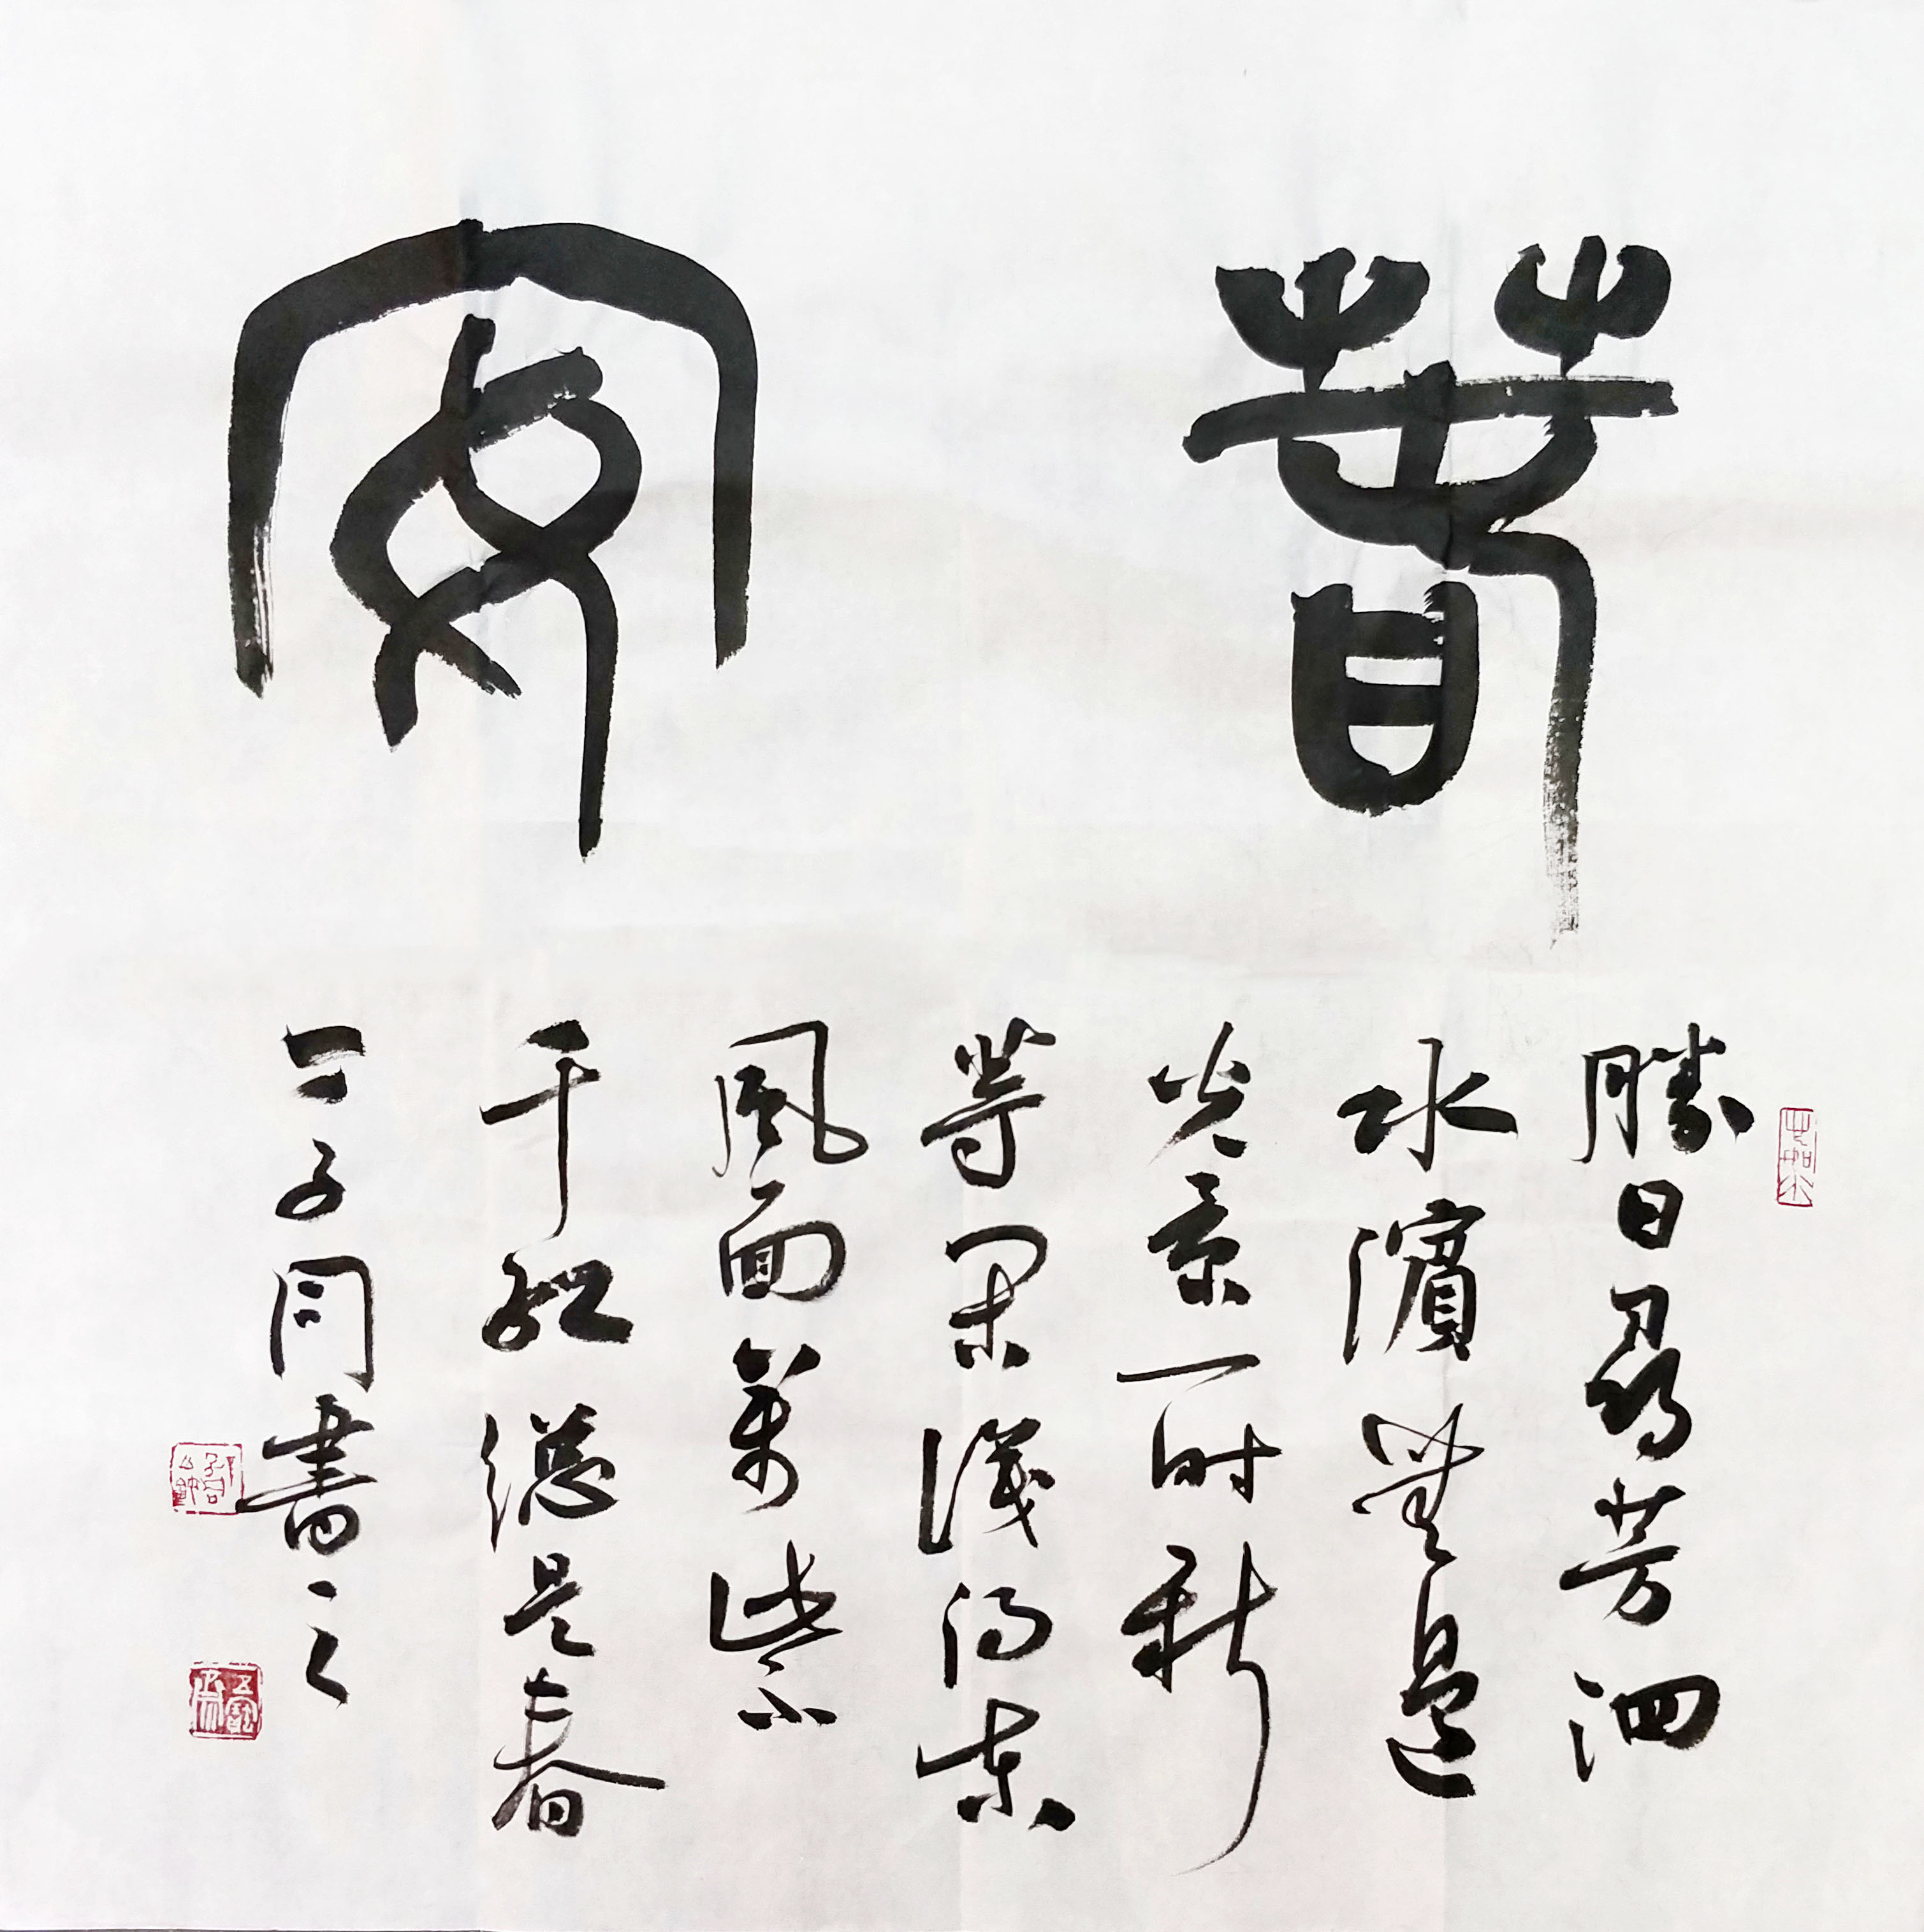 春安
勝日尋芳泗
水濱無邊
光景一時新
等閑識得東
風面萬紫
千紅總是春
子同書之